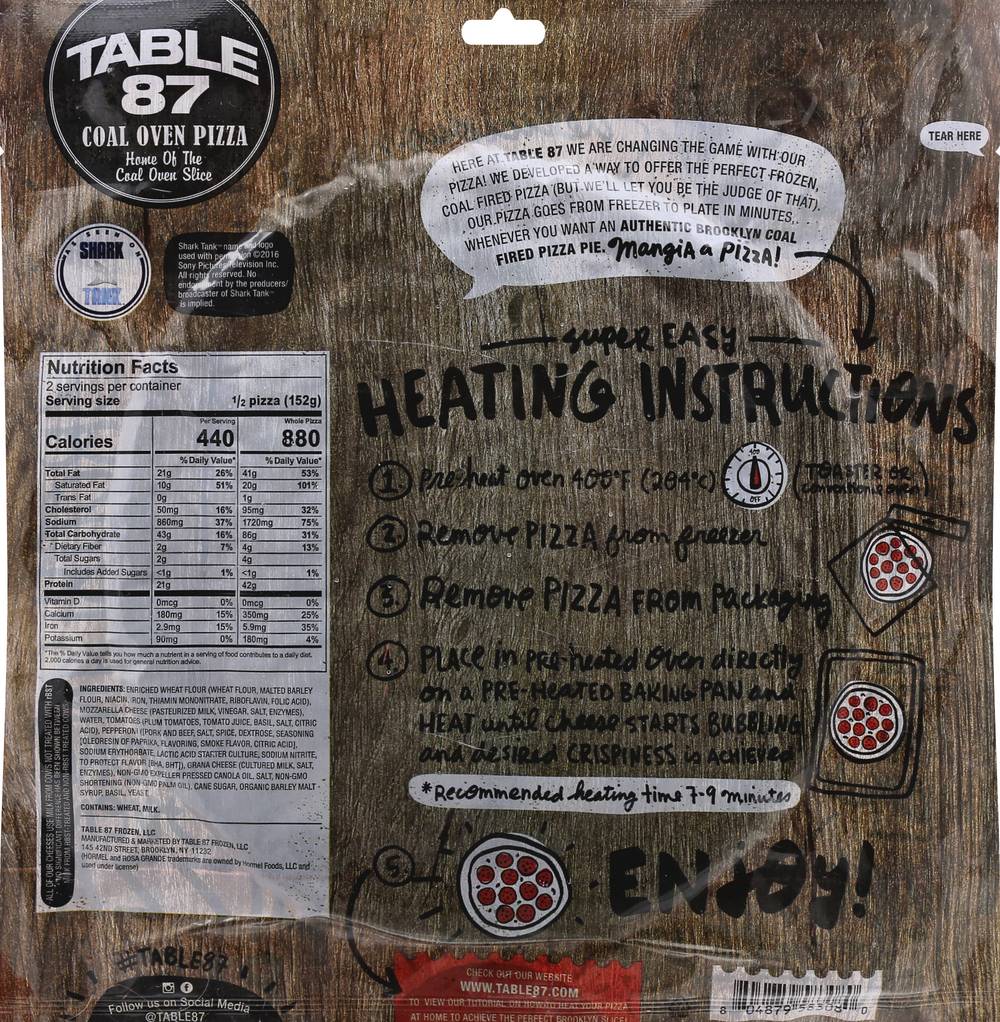 TABLE
87
COAL OVEN PIZZA
Home Of The
Coal Oven Slice
TEAR HERE
HERE AT TABLE 87 WE ARE CHANGING THE GAME WITH OUR
PIZZA! WE DEVELOPED A WAY TO OFFER THE PERFECT FROZEN,
COAL FIRED PIZZA (BUT WE'LL LET YOU BE THE JUDGE OF THAT).
OUR PIZZA GOES FROM FREEZER TO PLATE IN MINUTES,
WHENEVER YOU WANT AN AUTHENTIC BROOKLYN COAL
FIRED PIZZA PIE. MangiA a PIZZA!
AS SEEN ON
SHARK
TANK
Shark Tank name and logo
used with permission ©2016
Sony Pictures Television Inc.
All rights reserved. No
endorsement by the producers/
broadcaster of Shark Tank
is implied.
super EASY
HEATING INSTRUCTIONS
1 Pre-heat oven 400°F (204°C)
400
OFF
(TOASTER OR
conventional oven)
2 Remove PIZZA from freezer
3 Remove PIZZA FROM Packaging
4 PLACE in PRE-heated Oven directly
on a PRE-HEATED BAKING PAN and
HEAT until cheese STARTS BUBBLING
and desired CRISPINESS is ACHIEVED
*Recommended heating time 7-9 minutes
5 ENJOY!
Nutrition Facts
2 servings per container
Serving size 1/2 pizza (152g)
Per Serving Whole Pizza
Calories 440 880
% Daily Value* % Daily Value*
Total Fat 21g 26% 41g 53%
Saturated Fat 10g 51% 20g 101%
Trans Fat 0g 1g
Cholesterol 50mg 16% 95mg 32%
Sodium 860mg 37% 1720mg 75%
Total Carbohydrate 43g 16% 86g 31%
Dietary Fiber 2g 7% 4g 13%
Total Sugars 2g 4g
Includes Added Sugars <1g 1% <1g 1%
Protein 21g 42g
Vitamin D 0mcg 0% 0mcg 0%
Calcium 180mg 15% 350mg 25%
Iron 2.9mg 15% 5.9mg 35%
Potassium 90mg 0% 180mg 4%
*The % Daily Value tells you how much a nutrient in a serving of food contributes to a daily diet.
2,000 calories a day is used for general nutrition advice.
ALL OF OUR CHEESES USE MILK FROM COWS NOT TREATED WITH rBST
*NO SIGNIFICANT DIFFERENCE HAS BEEN SHOWN BETWEEN
MILK FROM rBST-TREATED AND NON-rBST TREATED COWS.
INGREDIENTS: ENRICHED WHEAT FLOUR (WHEAT FLOUR, MALTED BARLEY
FLOUR, NIACIN, IRON, THIAMIN MONONITRATE, RIBOFLAVIN, FOLIC ACID),
MOZZARELLA CHEESE (PASTEURIZED MILK, VINEGAR, SALT, ENZYMES),
WATER, TOMATOES (PLUM TOMATOES, TOMATO JUICE, BASIL, SALT, CITRIC
ACID), PEPPERONI ([PORK AND BEEF, SALT, SPICE, DEXTROSE, SEASONING
[OLEORESIN OF PAPRIKA, FLAVORING, SMOKE FLAVOR, CITRIC ACID],
SODIUM ERYTHORBATE, LACTIC ACID STARTER CULTURE, SODIUM NITRITE,
TO PROTECT FLAVOR [BHA, BHT]), GRANA CHEESE (CULTURED MILK, SALT,
ENZYMES), NON-GMO EXPELLER PRESSED CANOLA OIL, SALT, NON-GMO
SHORTENING (NON-GMO PALM OIL), CANE SUGAR, ORGANIC BARLEY MALT
SYRUP, BASIL, YEAST.
CONTAINS: WHEAT, MILK.
TABLE 87 FROZEN, LLC
MANUFACTURED & MARKETED BY TABLE 87 FROZEN, LLC
145 42ND STREET, BROOKLYN, NY 11232
(HORMEL and ROSA GRANDE trademarks are owned by Hormel Foods, LLC and
used under license)
#TABLE87
Follow us on Social Media
@TABLE87
CHECK OUT OUR WEBSITE
WWW.TABLE87.COM
TO VIEW OUR TUTORIAL ON HOW TO HEAT YOUR PIZZA
AT HOME TO ACHIEVE THE PERFECT BROOKLYN SLICE!
8 04879 0